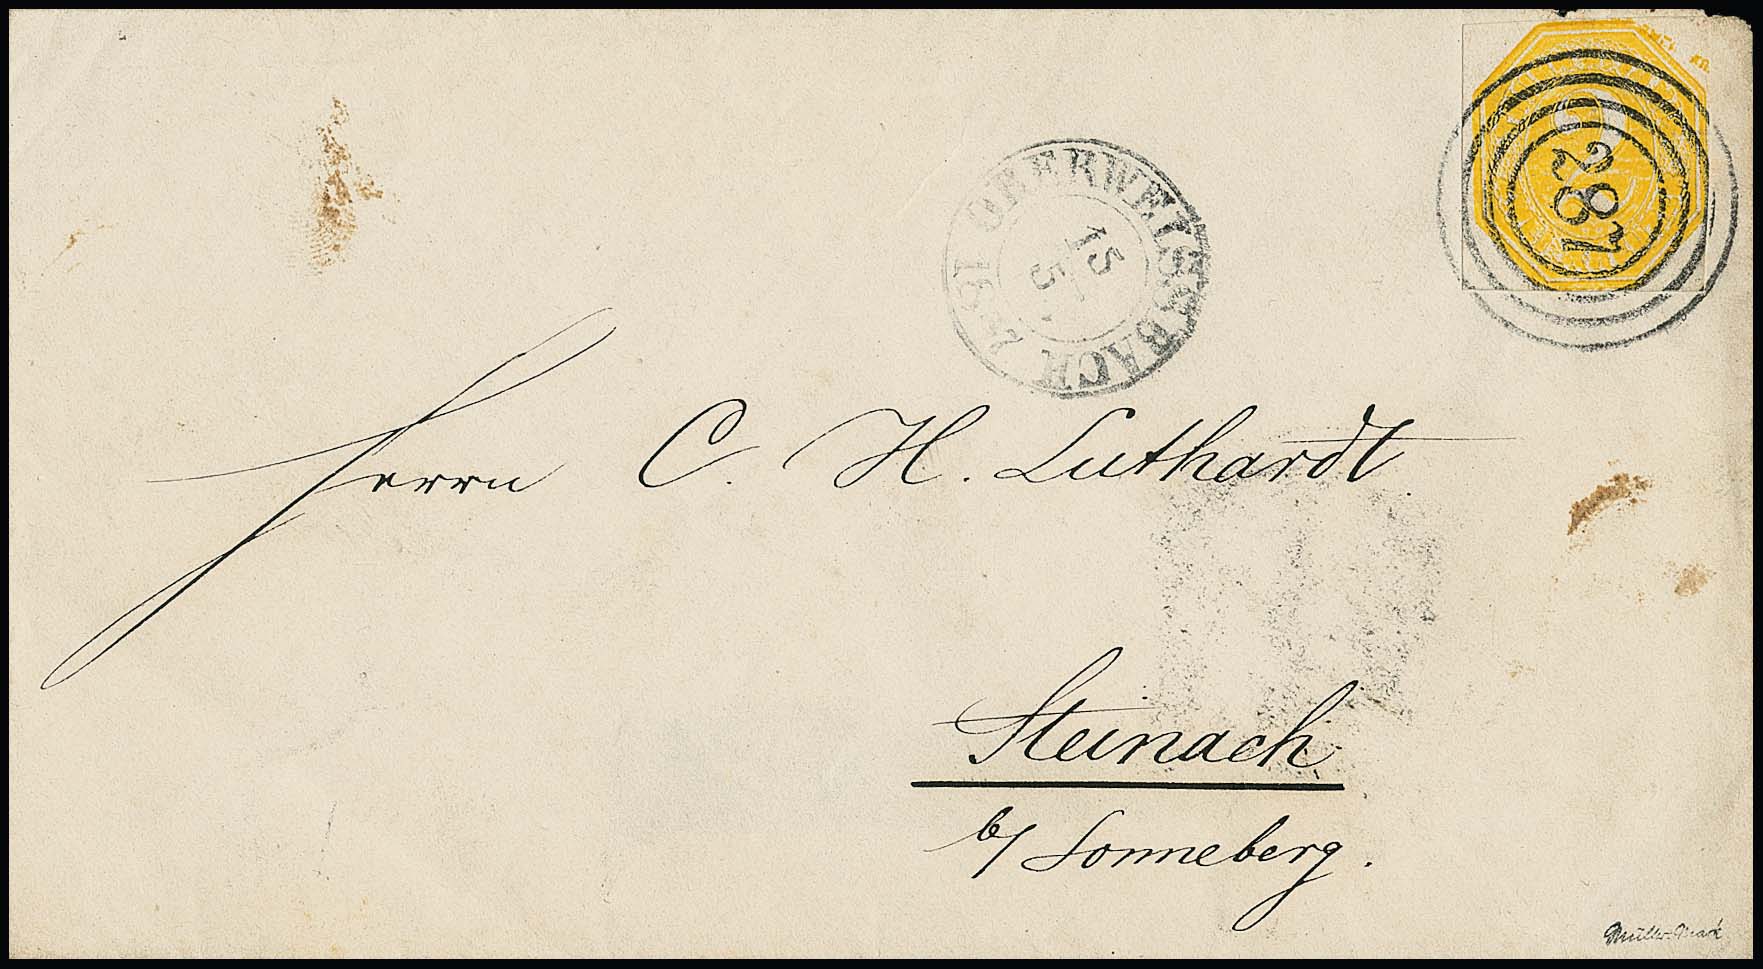 287
OBERWEISSBACH
15
5
Herrn C. H. Luthardt
Steinach
b/ Sonneberg.